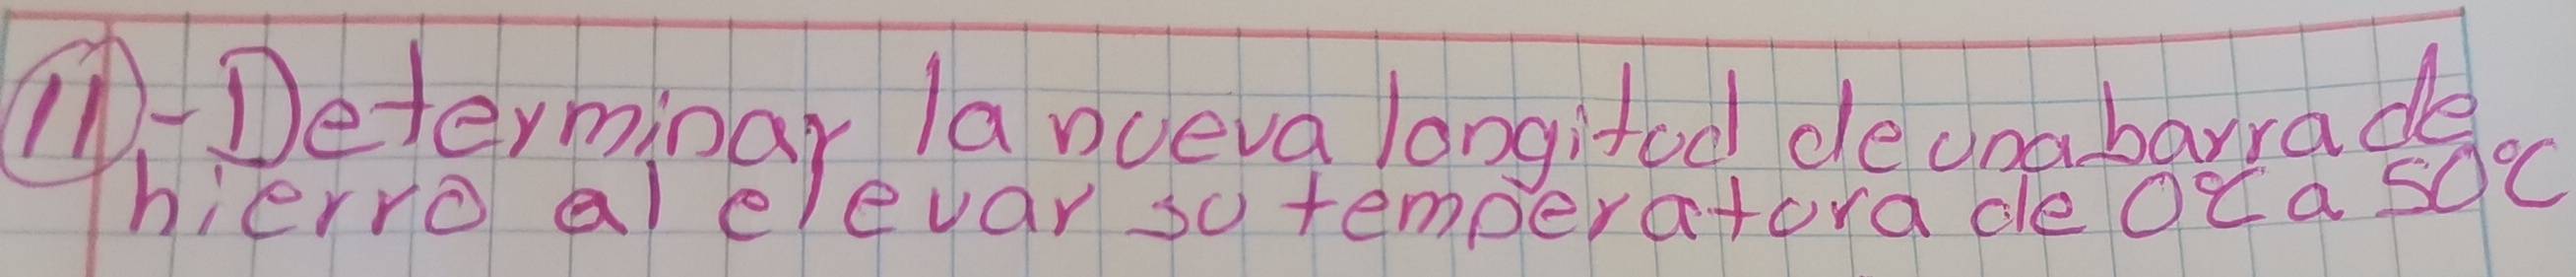 11-Determinar la nueva longitud de una barra de
hierro al elevar su temperatura de 0°C a 50°C